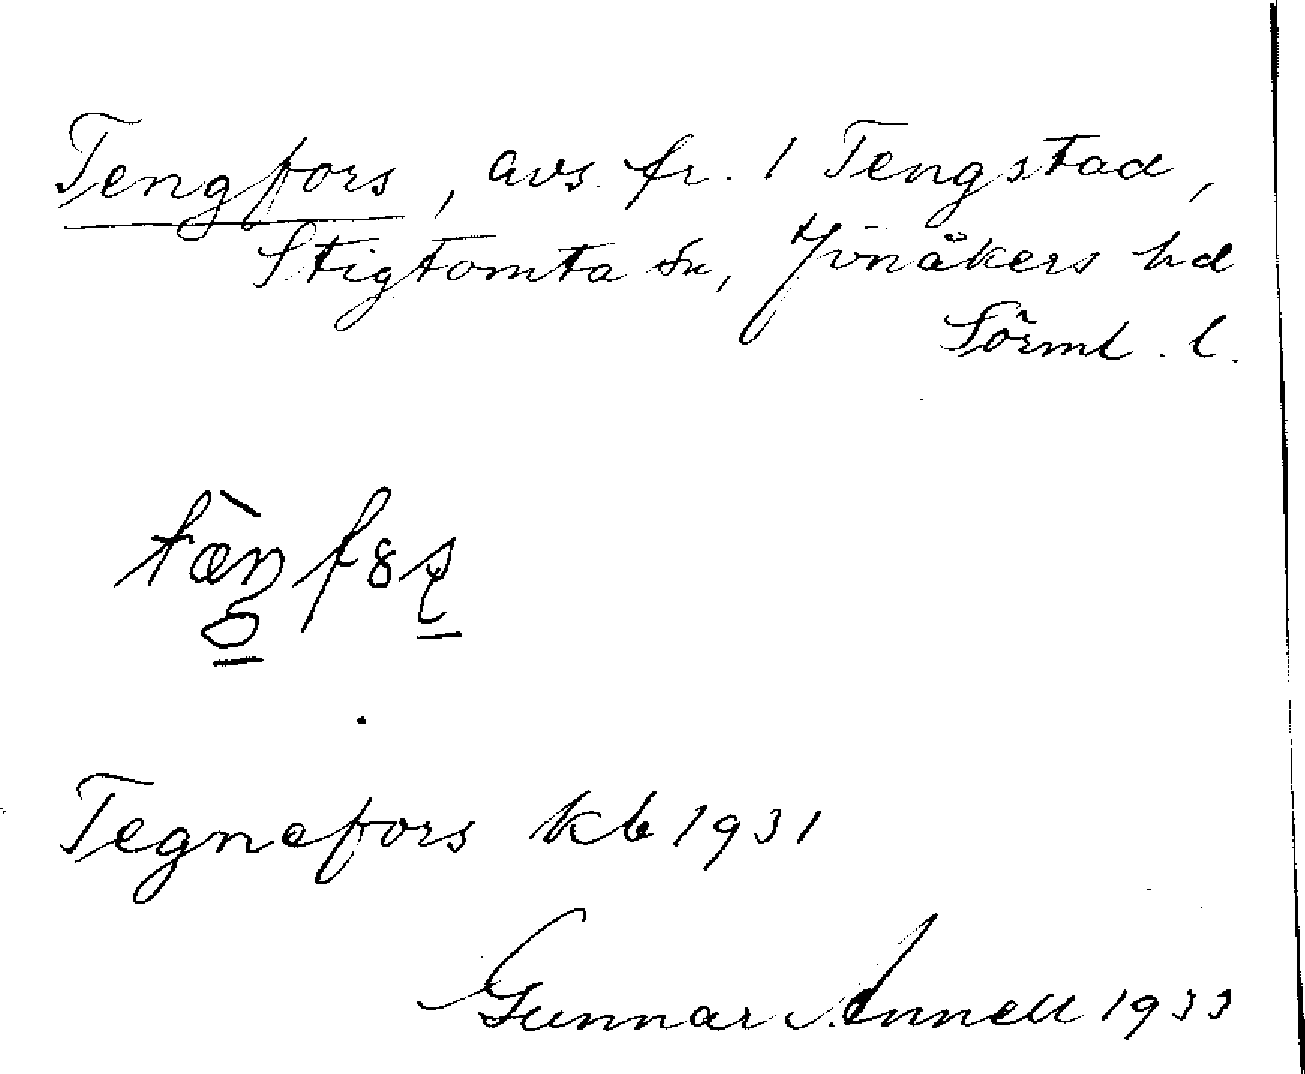 Tengfors, avs. fr. 1 Tengstad,
Stigtomta sn, Jönåkers hd
Sörml. l.
Tegnefors kb 1931
Gunnar Annell 1933